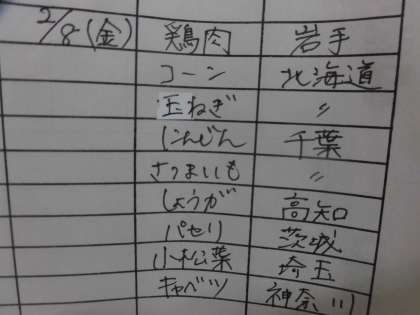 2/8(金) 鶏肉 岩手
コーン 北海道
玉ねぎ 〃
にんじん 千葉
さつまいも 〃
しょうが 高知
パセリ 茨城
小松菜 埼玉
キャベツ 神奈川